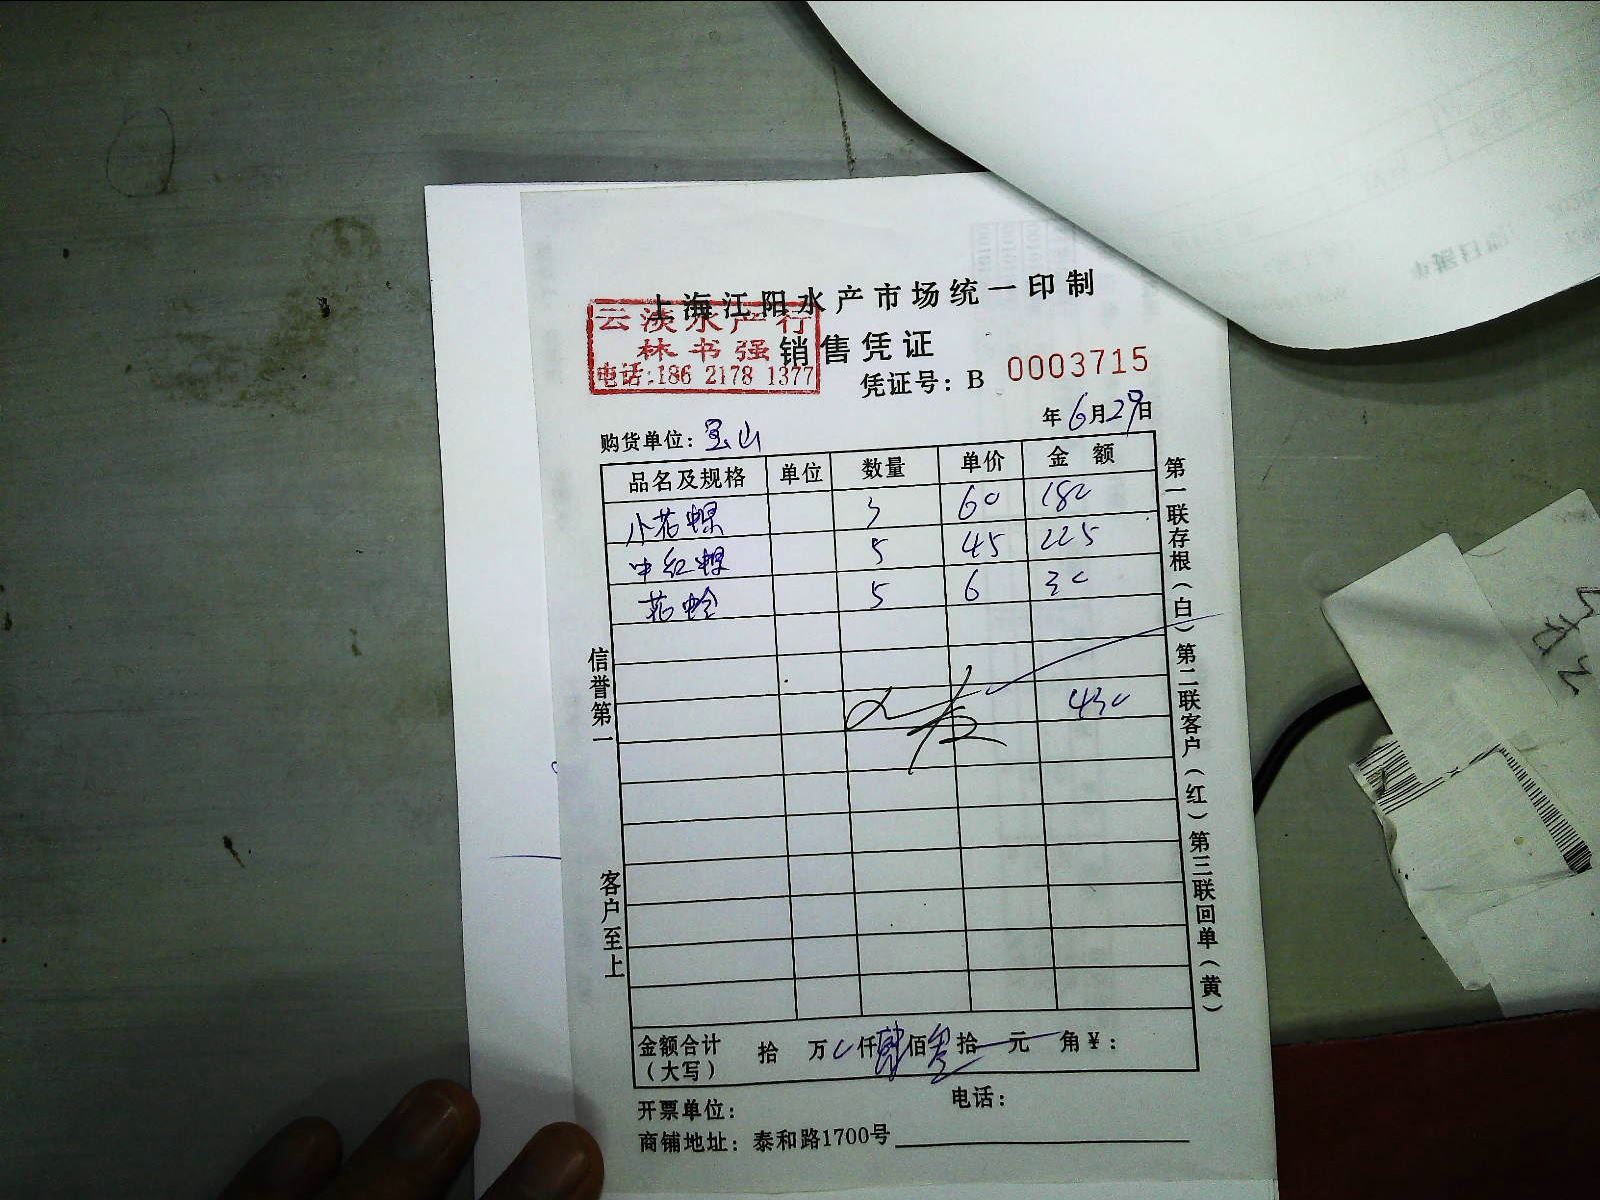 上海江阳水产市场统一印制
云淡水产行
林书强
电话:186 2178 1377
销售凭证
凭证号：B 0003715
年6月29日
购货单位：宝山
品名及规格 单位 数量 单价 金额
小花螺 3 60 180
中红螺 5 45 225
花蛤 5 6 30
430
信誉第一
客户至上
第一联存根（白）第二联客户（红）第三联回单（黄）
金额合计（大写） 拾 万 仟肆佰叁拾 元 角￥：
开票单位： 电话：
商铺地址：泰和路1700号